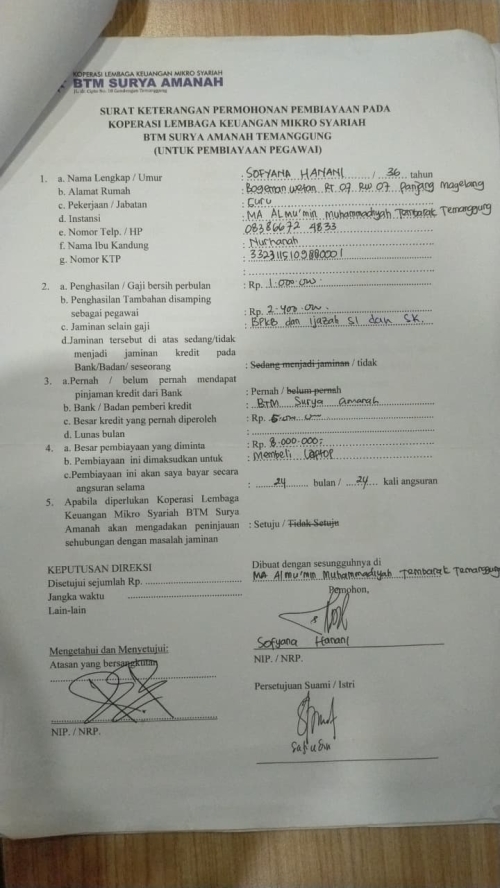 KOPERASI LEMBAGA KEUANGAN MIKRO SYARIAH
BTM SURYA AMANAH
SURAT KETERANGAN PERMOHONAN PEMBIAYAAN PADA
KOPERASI LEMBAGA KEUANGAN MIKRO SYARIAH
BTM SURYA AMANAH TEMANGGUNG
(UNTUK PEMBIAYAAN PEGAWAI)
1. a. Nama Lengkap / Umur : SOFYANA HANANI / 36 tahun
b. Alamat Rumah : Bogeman wetan RT 07 RW 07 Panjang Magelang
c. Pekerjaan / Jabatan : Guru
d. Instansi : MA ALmu'min muhammadiyah Tembarak Temanggung
e. Nomor Telp. / HP : 08386672 4833
f. Nama Ibu Kandung : Nurhanah
g. Nomor KTP :
2. a. Penghasilan / Gaji bersih perbulan : Rp. 1.000.000
b. Penghasilan Tambahan disamping
sebagai pegawai : Rp. 2.400.000
c. Jaminan selain gaji : BPKB dan Ijazah S1 dan SK.
d.Jaminan tersebut di atas sedang/tidak
menjadi jaminan kredit pada
Bank/Badan/ seseorang : Sedang menjadi jaminan / tidak
3. a.Pernah / belum pernah mendapat
pinjaman kredit dari Bank : Pernah / belum pernah
b. Bank / Badan pemberi kredit : BTM Surya amanah
c. Besar kredit yang pernah diperoleh : Rp.
d. Lunas bulan :
4. a. Besar pembiayaan yang diminta : Rp. 8.000.000;
b. Pembiayaan ini dimaksudkan untuk : Membeli Laptop
c.Pembiayaan ini akan saya bayar secara
angsuran selama : 24 bulan / 24 kali angsuran
5. Apabila diperlukan Koperasi Lembaga
Keuangan Mikro Syariah BTM Surya
Amanah akan mengadakan peninjauan : Setuju / Tidak Setuju
sehubungan dengan masalah jaminan
KEPUTUSAN DIREKSI
Disetujui sejumlah Rp.
Jangka waktu
Lain-lain
Dibuat dengan sesungguhnya di
MA Almu'min Muhammadiyah Tembarak Temanggung
Pemohon,
Sofyana Hanani
NIP. / NRP.
Mengetahui dan Menyetujui:
Atasan yang bersangkutan
NIP. / NRP.
Persetujuan Suami / Istri